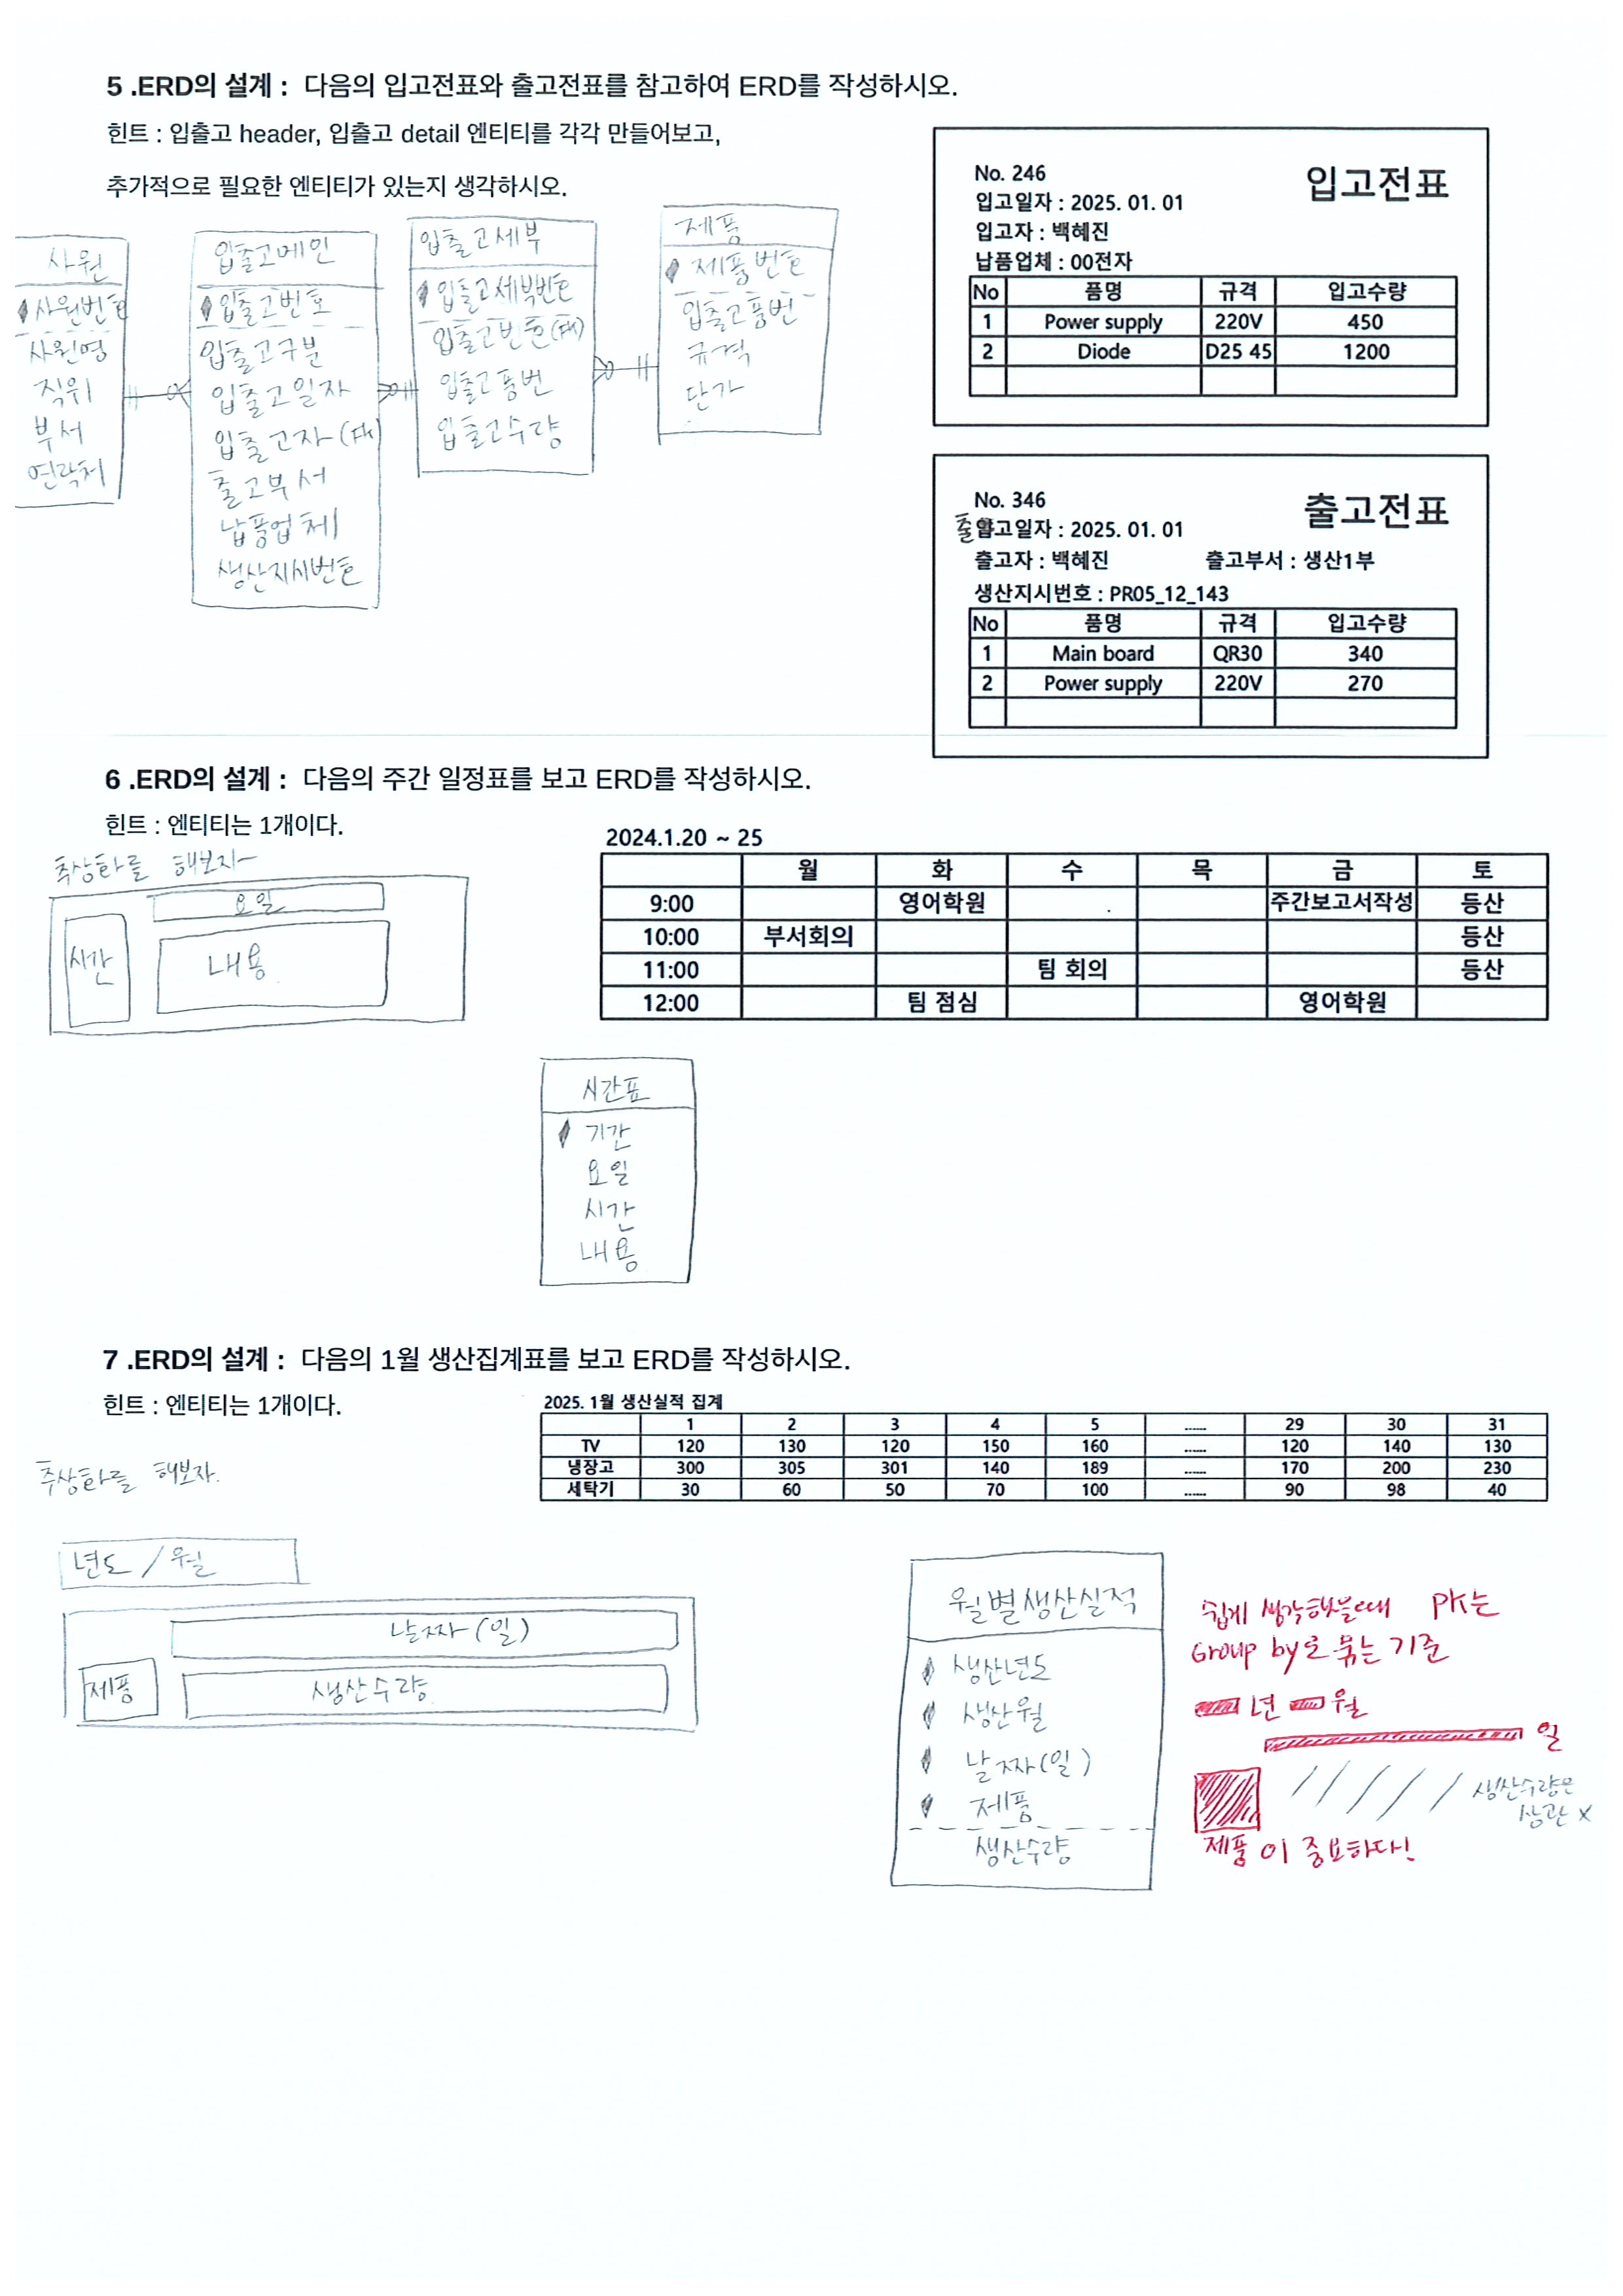 5 .ERD의 설계 : 다음의 입고전표와 출고전표를 참고하여 ERD를 작성하시오.
힌트 : 입출고 header, 입출고 detail 엔티티를 각각 만들어보고,
추가적으로 필요한 엔티티가 있는지 생각하시오.
사원
사원번호
사원명
직위
부서
연락처
입출고메인
입출고번호
입출고구분
입출고일자
입출고자(FK)
출고부서
납품업체
생산지시번호
입출고세부
입출고세부번호
입출고번호(FK)
입출고품번
입출고수량
제품
제품번호
입출고품번
규격
단가
No. 246 입고전표
입고일자 : 2025. 01. 01
입고자 : 백혜진
납품업체 : 00전자
No 품명 규격 입고수량
1 Power supply 220V 450
2 Diode D25 45 1200
No. 346 출고전표
출고일자 : 2025. 01. 01
출고자 : 백혜진 출고부서 : 생산1부
생산지시번호 : PR05_12_143
No 품명 규격 입고수량
1 Main board QR30 340
2 Power supply 220V 270
6 .ERD의 설계 : 다음의 주간 일정표를 보고 ERD를 작성하시오.
힌트 : 엔티티는 1개이다.
추상화를 해보자~
요일
시간
내용
2024.1.20 ~ 25
월 화 수 목 금 토
9:00 영어학원 주간보고서작성 등산
10:00 부서회의 등산
11:00 팀 회의 등산
12:00 팀 점심 영어학원
시간표
기간
요일
시간
내용
7 .ERD의 설계 : 다음의 1월 생산집계표를 보고 ERD를 작성하시오.
힌트 : 엔티티는 1개이다.
2025. 1월 생산실적 집계
1 2 3 4 5 ...... 29 30 31
TV 120 130 120 150 160 ...... 120 140 130
냉장고 300 305 301 140 189 ...... 170 200 230
세탁기 30 60 50 70 100 ...... 90 98 40
추상화를 해보자.
년도 / 월
날짜(일)
제품
생산수량
월별생산실적
생산년도
생산월
날짜(일)
제품
생산수량
쉽게 생각했을때 PK는
Group by로 묶는 기준
년 월
일
생산수량은
상관 X
제품이 중요하다!